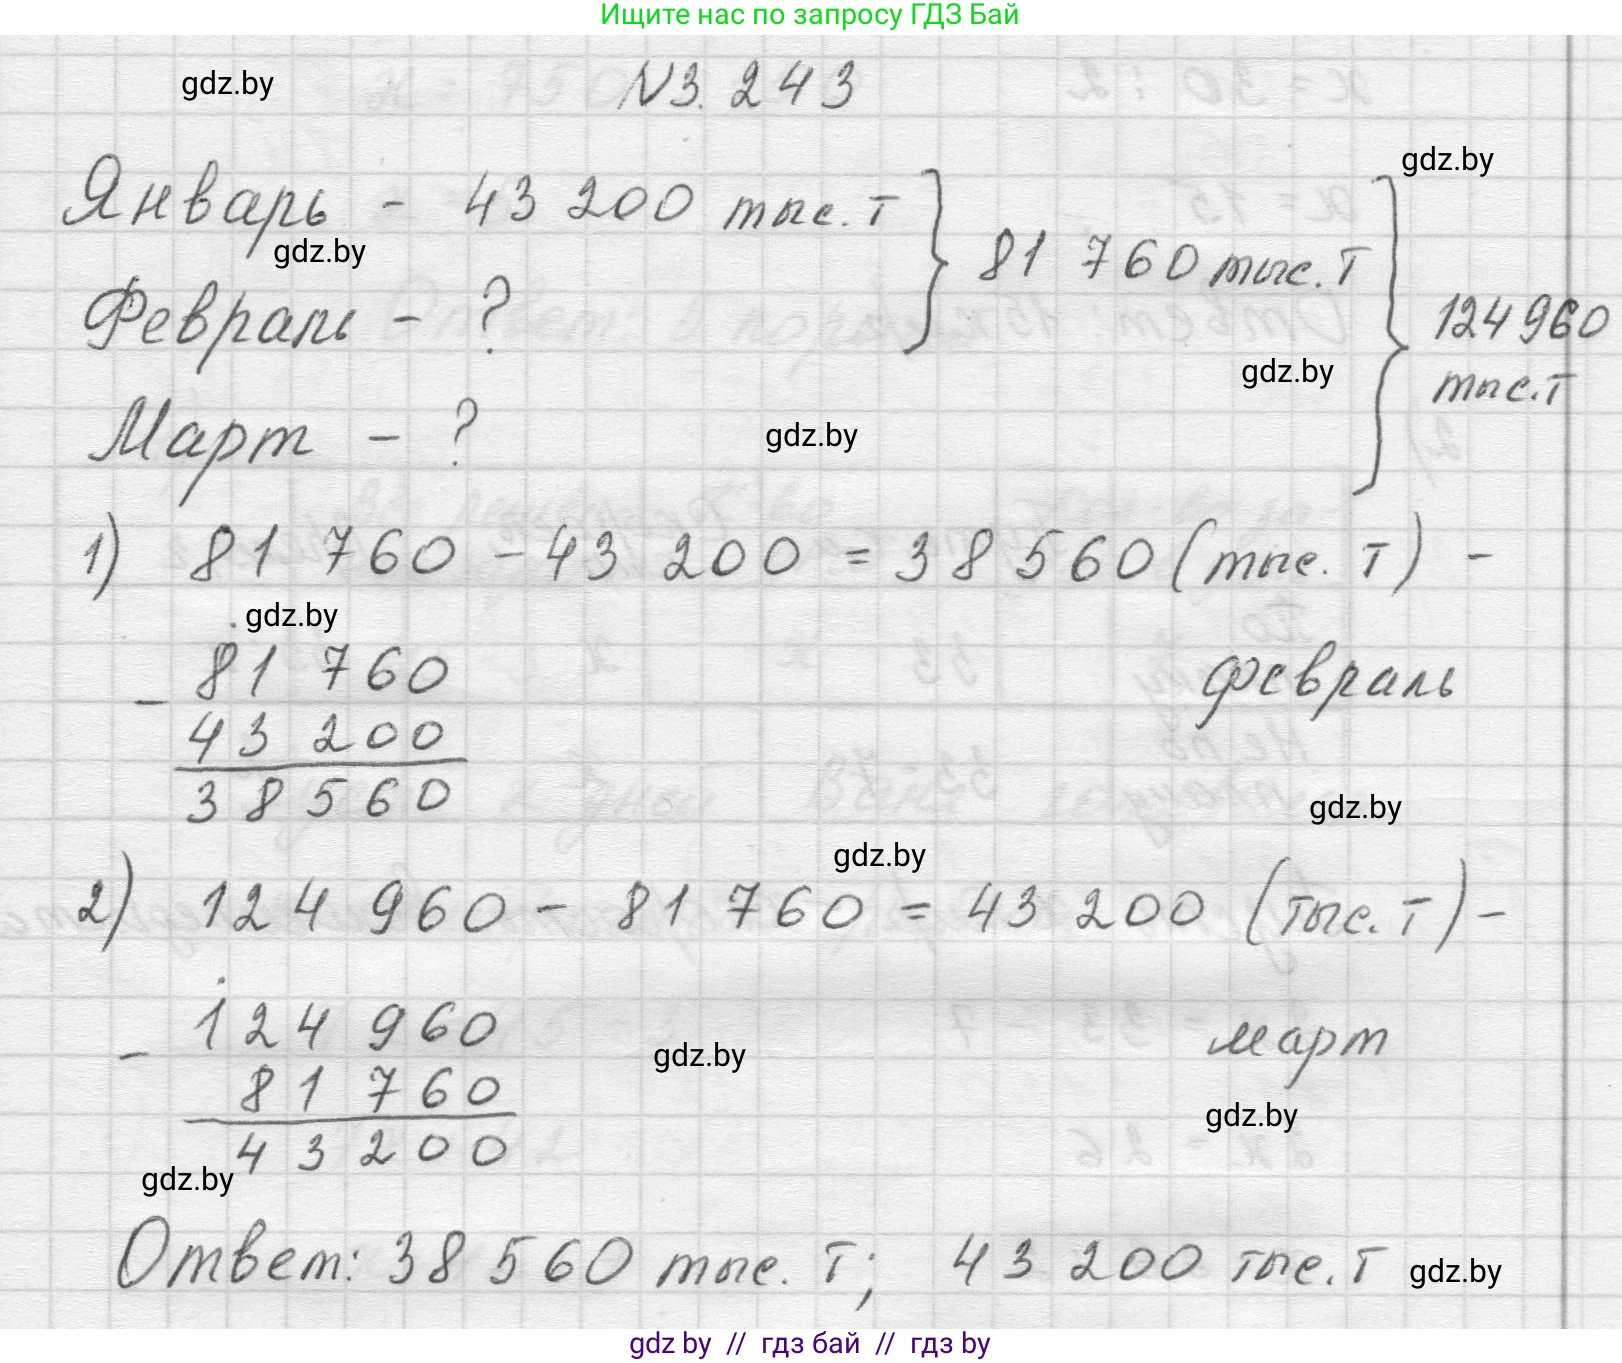 Ищите нас по запросу ГДЗ Бай
gdz.by
№3.243
gdz.by
Январь - 43 200 тыс. т
81 760 тыс. т
gdz.by
Февраль - ?
124 960
тыс. т
gdz.by
Март - ?
gdz.by
1) 81 760 - 43 200 = 38 560 (тыс. т) -
февраль
gdz.by
- 81 760
43 200
38 560
gdz.by
gdz.by
2) 124 960 - 81 760 = 43 200 (тыс. т) -
март
- 124 960
81 760
43 200
gdz.by
gdz.by
gdz.by
Ответ: 38 560 тыс. т; 43 200 тыс. т
gdz.by
gdz by // гдз бай // гдз by